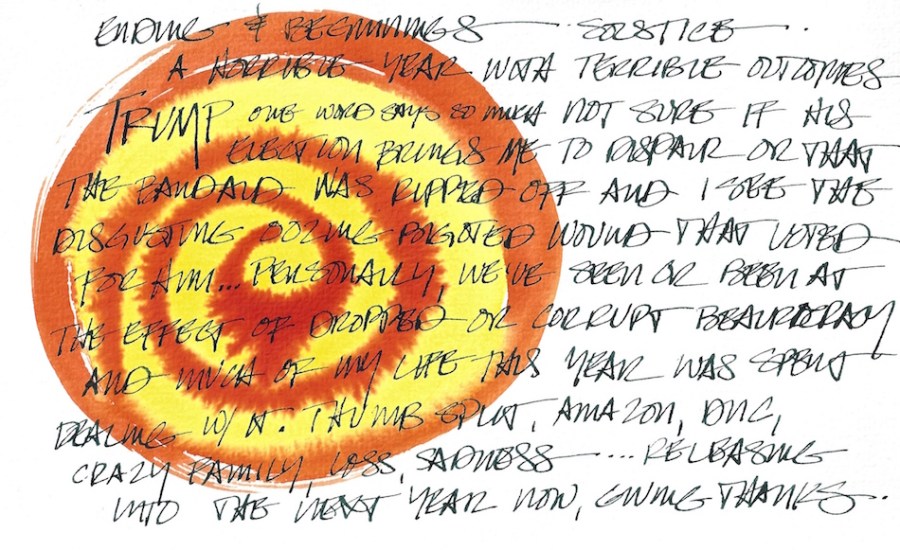 ENDING & BEGINNINGS SOLSTICE.
A HORRIBLE YEAR WITH TERRIBLE OUTCOMES
TRUMP ONE WORD SAYS SO MUCH NOT SURE IF HIS
ELECTION BRINGS ME TO DISPAIR OR THAT
THE BANDAID WAS RIPPED OFF AND I SEE THE
DISGUSTING OOZING BIGOTED WOUND THAT VOTED
FOR HIM... PERSONALLY, WE'VE SEEN OR BEEN AT
THE EFFECT OF DROPPED OR CORRUPT
AND MUCH OF MY LIFE THIS YEAR WAS SPENT
DEALING W/ IT. THUMB SPLIT, AMAZON, DMC,
CRAZY FAMILY, LOSS, SADNESS .... RELEASING
INTO THE NEXT YEAR NOW, GIVING THANKS.